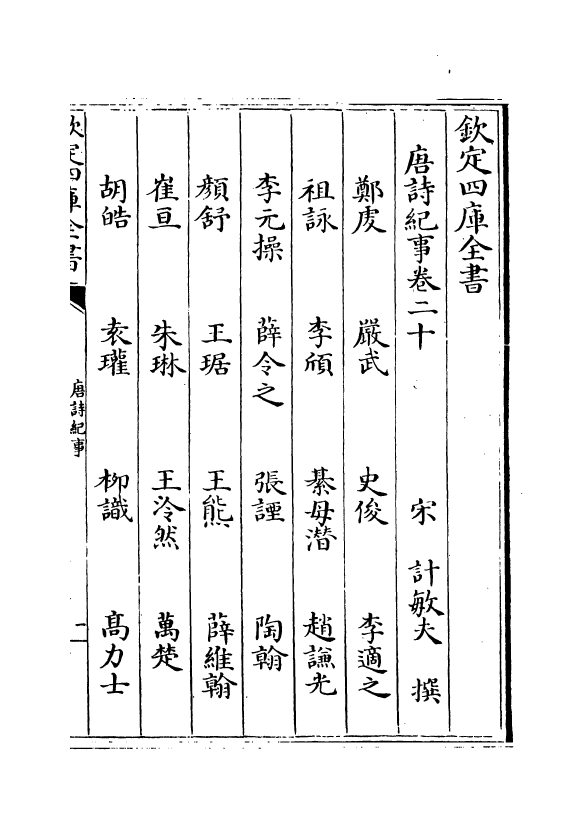 欽定四庫全書
唐詩紀事卷二十　宋　計敏夫　撰
鄭虔　嚴武　史俊　李適之
祖詠　李頎　綦毋潛　趙謙光
李元操　薛令之　張諲　陶翰
顏舒　王琚　王熊　薛維翰
崔亘　朱琳　王泠然　萬楚
胡皓　袁瓘　柳識　高力士
欽定四庫全書　唐詩紀事　一